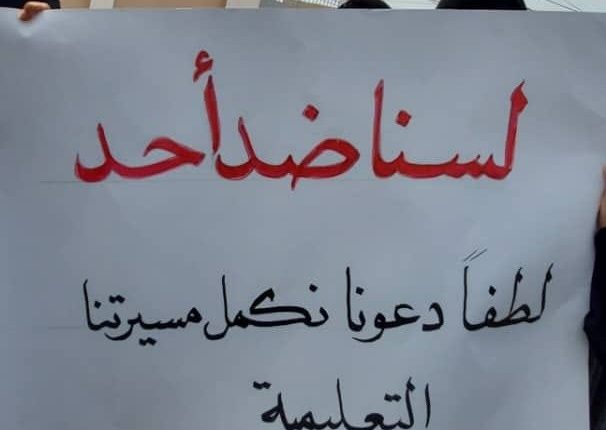 لسنا ضد أحد
لطفاً دعونا نكمل مسيرتنا
التعليمية